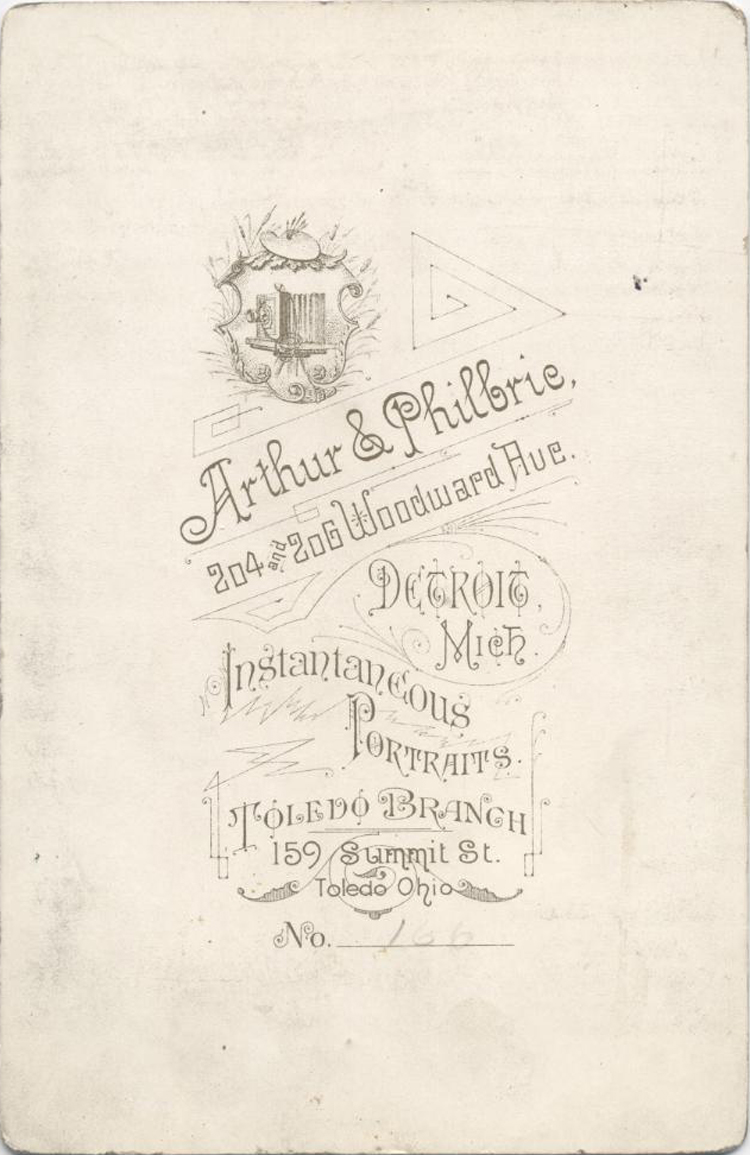 Arthur & Philbric,
204 and 206 Woodward Ave.
DETROIT,
Mich.
Instantaneous
PORTRAITS.
TOLEDO BRANCH
159 Summit St.
Toledo Ohio
No. 166